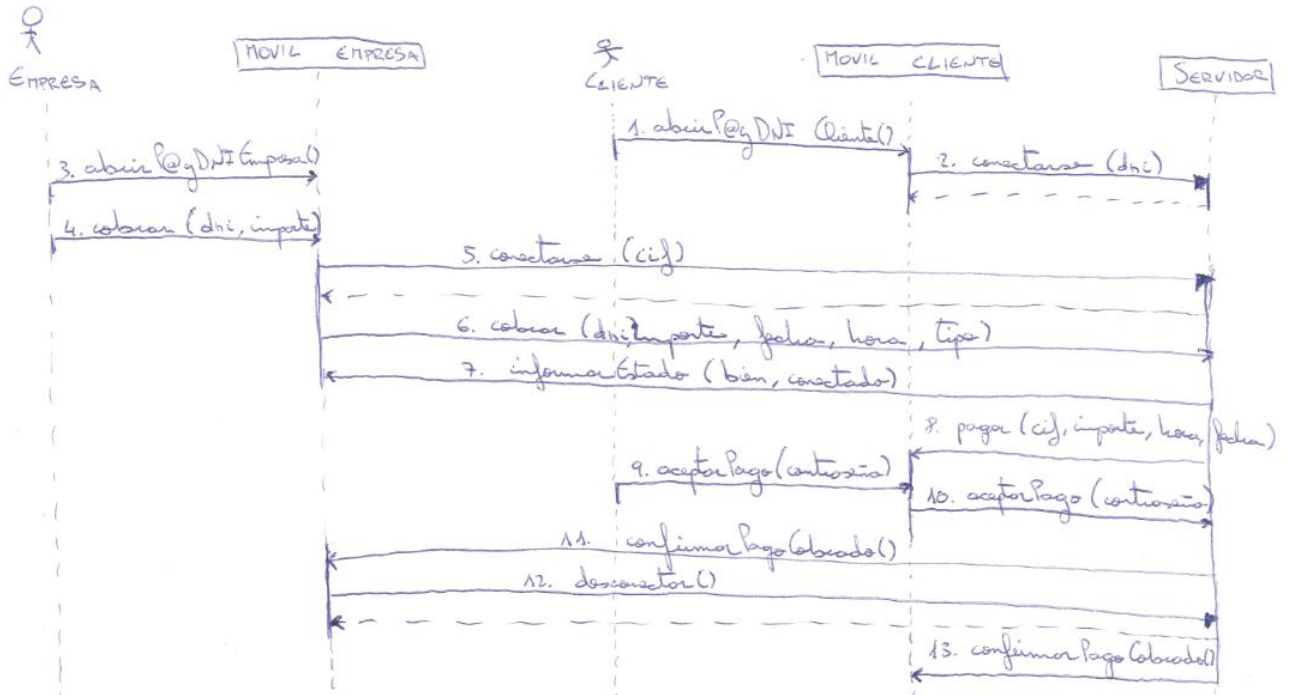 EMPRESA
MOVIL EMPRESA
CLIENTE
MOVIL CLIENTE
SERVIDOR
1. abrirP@yDNI Cliente()
2. conectarse (dni)
3. abrir P@yDNI Empresa()
4. cobrar (dni, importe)
5. conectarse (cif)
6. cobrar (dni, importe, fecha, hora, tipo)
7. informarEstado (bien, conectado)
8. pagar (cif, importe, hora, fecha)
9. aceptarPago (contraseña)
10. aceptarPago (contraseña)
11. confirmarPagoCobrado()
12. desconectar()
13. confirmarPagoCobrado()